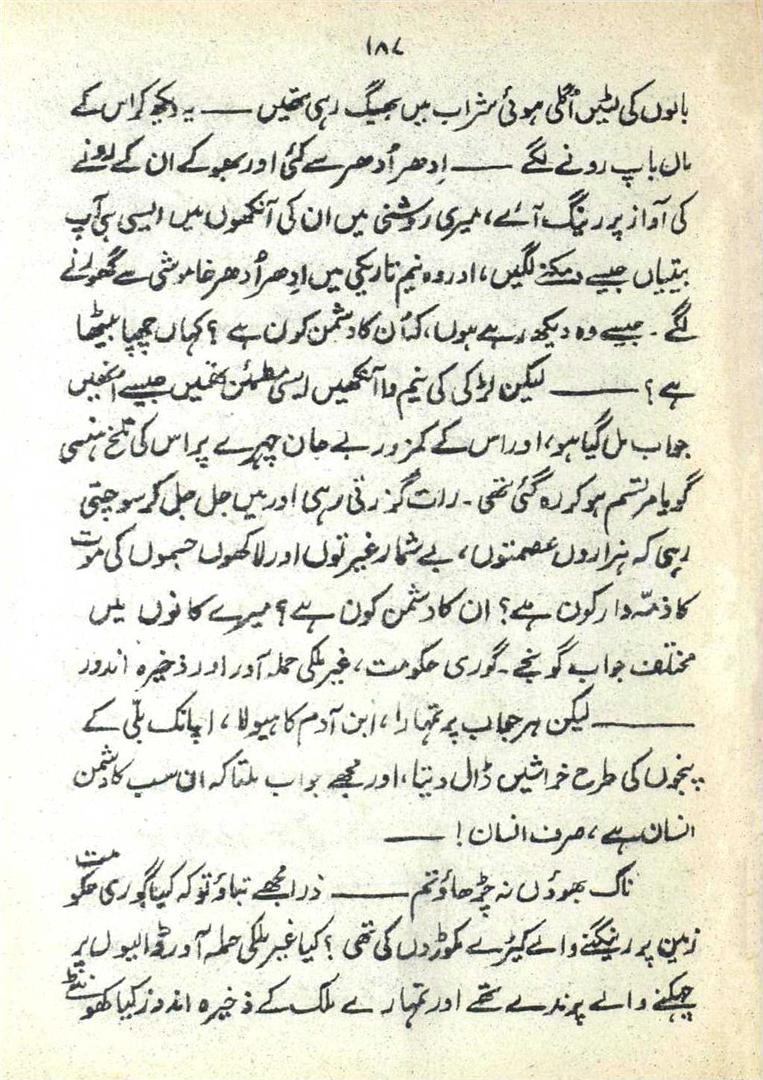 ۱۸۷
بالوں کی لٹیں اُگلی ہوئی شراب میں بھیگ رہی تھیں —— یہ دیکھ کر اس کے
ماں باپ رونے لگے —— اِدھر اُدھر سے کئی اور بھوکے ان کے رونے
کی آواز پر رینگ آئے، میری روشنی میں ان کی آنکھوں میں ایسی ہی آپ
بیتیاں جیسے دمکنے لگیں، اور وہ نیم تاریکی میں اِدھر اُدھر خاموشی سے گھورنے
لگے۔ جیسے وہ دیکھ رہے ہوں، کہ اُن کا دشمن کون ہے؟ کہاں چھپا بیٹھا
ہے؟ —— لیکن لڑکی کی نیم وا آنکھیں ایسی مطمئن تھیں جیسے انھیں
جواب مل گیا ہو، اور اس کے کمزور بے جان چہرے پر اس کی تلخ ہنسی
گویا مرتسم ہو کر رہ گئی تھی۔ رات گزرتی رہی اور میں جل جل کر سوچتی
رہی کہ ہزاروں عصمتوں، بے شمار غیرتوں اور لاکھوں جسموں کی موت
کا ذمّہ دار کون ہے؟ ان کا دشمن کون ہے؟ میرے کانوں میں
مختلف جواب گونجے۔ گوری حکومت، غیر ملکی حملہ آور اور ذخیرہ اندوز
—— لیکن ہر جواب پر تمہارا، ابن آدم کا ہیولا، اچانک بلّی کے
پنجوں کی طرح خراشیں ڈال دیتا، اور مجھے جواب ملتا کہ ان سب کا دشمن
انسان ہے، صرف انسان! ——
ناک بھوؤں نہ چڑھاؤ تم —— ذرا مجھے بتاؤ تو کہ کیا گوری حکومت
زمین پر رینگنے والے کیڑے مکوڑوں کی تھی؟ کیا غیر ملکی حملہ آور ڈالیوں پر
چہکنے والے پرندے تھے اور تمہارے ملک کے ذخیرہ اندوز کیا کھونٹے